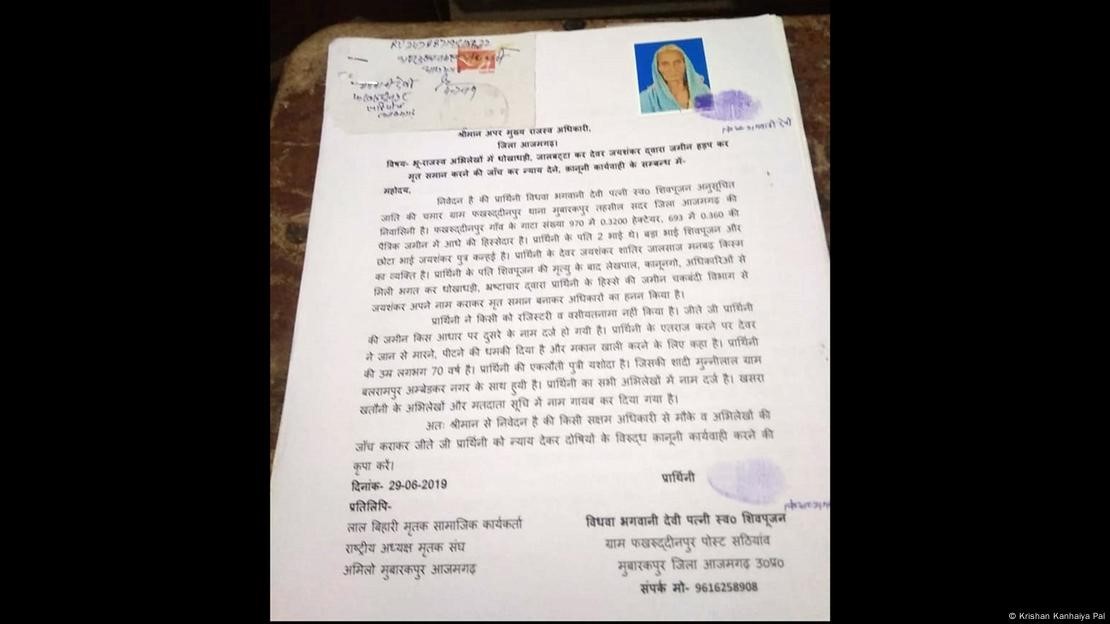 RU
श्रीमान अपर मुख्य राजस्व अधिकारी,
जिला आजमगढ़।
विषय- भू-राजस्व अभिलेखों में धोखाधड़ी, जालबट्टा कर देवर जयशंकर द्वारा जमीन हड़प कर
मृत समान करने की जाँच कर न्याय देने, क़ानूनी कार्यवाही के सम्बन्ध में-
महोदय,
निवेदन है की प्रार्थिनी विधवा भगवानी देवी पत्नी स्व० शिवपूजन अनुसूचित
जाति की चमार ग्राम फखरुद्दीनपुर थाना मुबारकपुर तहसील सदर जिला आजमगढ़ की
निवासिनी है। फखरुद्दीनपुर गाँव के गाटा संख्या 970 में 0.3200 हेक्टेयर, 693 में 0.360 की
पैत्रिक जमीन में आधे की हिस्सेदार है। प्रार्थिनी के पति 2 भाई थे। बड़ा भाई शिवपूजन और
छोटा भाई जयशंकर पुत्र कन्हई है। प्रार्थिनी के देवर जयशंकर शातिर जालसाज मनबढ़ किस्म
का व्यक्ति है। प्रार्थिनी के पति शिवपूजन की मृत्यु के बाद लेखपाल, कानूनगो, अधिकारिओं से
मिली भगत कर धोखाधड़ी, भ्रष्टाचार द्वारा प्रार्थिनी के हिस्से की जमीन चकबंदी विभाग से
जयशंकर अपने नाम कराकर मृत समान बनाकर अधिकारों का हनन किया है।
प्रार्थिनी ने किसी को रजिस्टरी व वसीयतनामा नहीं किया है। जीते जी प्रार्थिनी
की जमीन किस आधार पर दुसरे के नाम दर्ज हो गयी है। प्रार्थिनी के एतराज करने पर देवर
ने जान से मारने, पीटने की धमकी दिया है और मकान खाली करने के लिए कहा है। प्रार्थिनी
की उम्र लगभग 70 वर्ष है। प्रार्थिनी की एकलौती पुत्री यशोदा है। जिसकी शादी मुन्नीलाल ग्राम
बलरामपुर अम्बेडकर नगर के साथ हुयी है। प्रार्थिनी का सभी अभिलेखों में नाम दर्ज है। खसरा
खतौनी के अभिलेखों और मतदाता सूचि में नाम गायब कर दिया गया है।
अतः श्रीमान से निवेदन है की किसी सक्षम अधिकारी से मौके व अभिलेखों की
जाँच कराकर जीते जी प्रार्थिनी को न्याय देकर दोषियों के विरुद्ध कानूनी कार्यवाही करने की
कृपा करें।
दिनांक- 29-06-2019
प्रार्थिनी
प्रतिलिपि-
लाल बिहारी मृतक सामाजिक कार्यकर्ता
राष्ट्रीय अध्यक्ष मृतक संघ
अमिलो मुबारकपुर आजमगढ़
विधवा भगवानी देवी पत्नी स्व० शिवपूजन
ग्राम फखरुद्दीनपुर पोस्ट सठियांव
मुबारकपुर जिला आजमगढ़ उ०प्र०
संपर्क मो- 9616258908
© Krishan Kanhaiya Pal